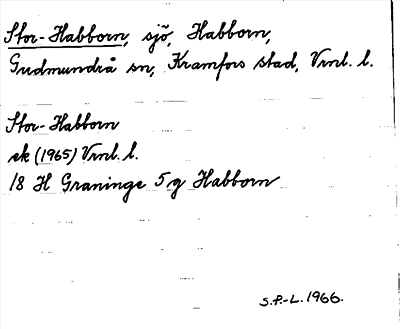 Stor-Habborn, sjö, Habborn,
Gudmundrå sn, Kramfors stad, Vrnl. l.
Stor-Habborn
ek (1965) Vrnl. l.
18 H Graninge 5 g Habborn
S.P.-L. 1966.